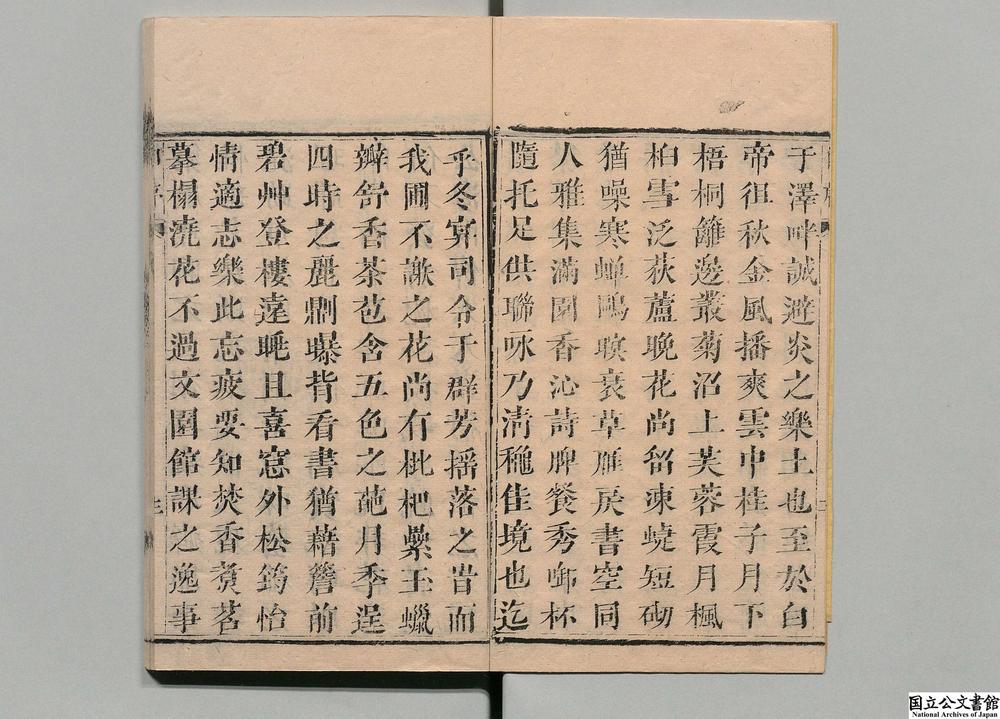 于澤畔誠避炎之樂土也至於白
帝徂秋金風播爽雲中桂子月下
梧桐籬邊叢菊沼上芙蓉霞月楓
柏雪泛荻蘆晚花尚留凍蜨短砌
猶噪寒蟬鷗暝衰草雁戾書空同
人雅集滿園香沁詩脾餐秀啣杯
隨托足供聯咏乃清穐佳境也迄
乎冬寅司令于群芳搖落之昔而
我圃不謝之花尚有枇杷纍玉蠟
瓣舒香茶苞含五色之葩月季逞
四時之麗鼎曝背看書猶藉簷前
碧艸登樓遠眺且喜窓外松筠怡
情適志樂此忘疲要知焚香煑茗
摹榻澆花不過文園館課之逸事
国立公文書館
National Archives of Japan